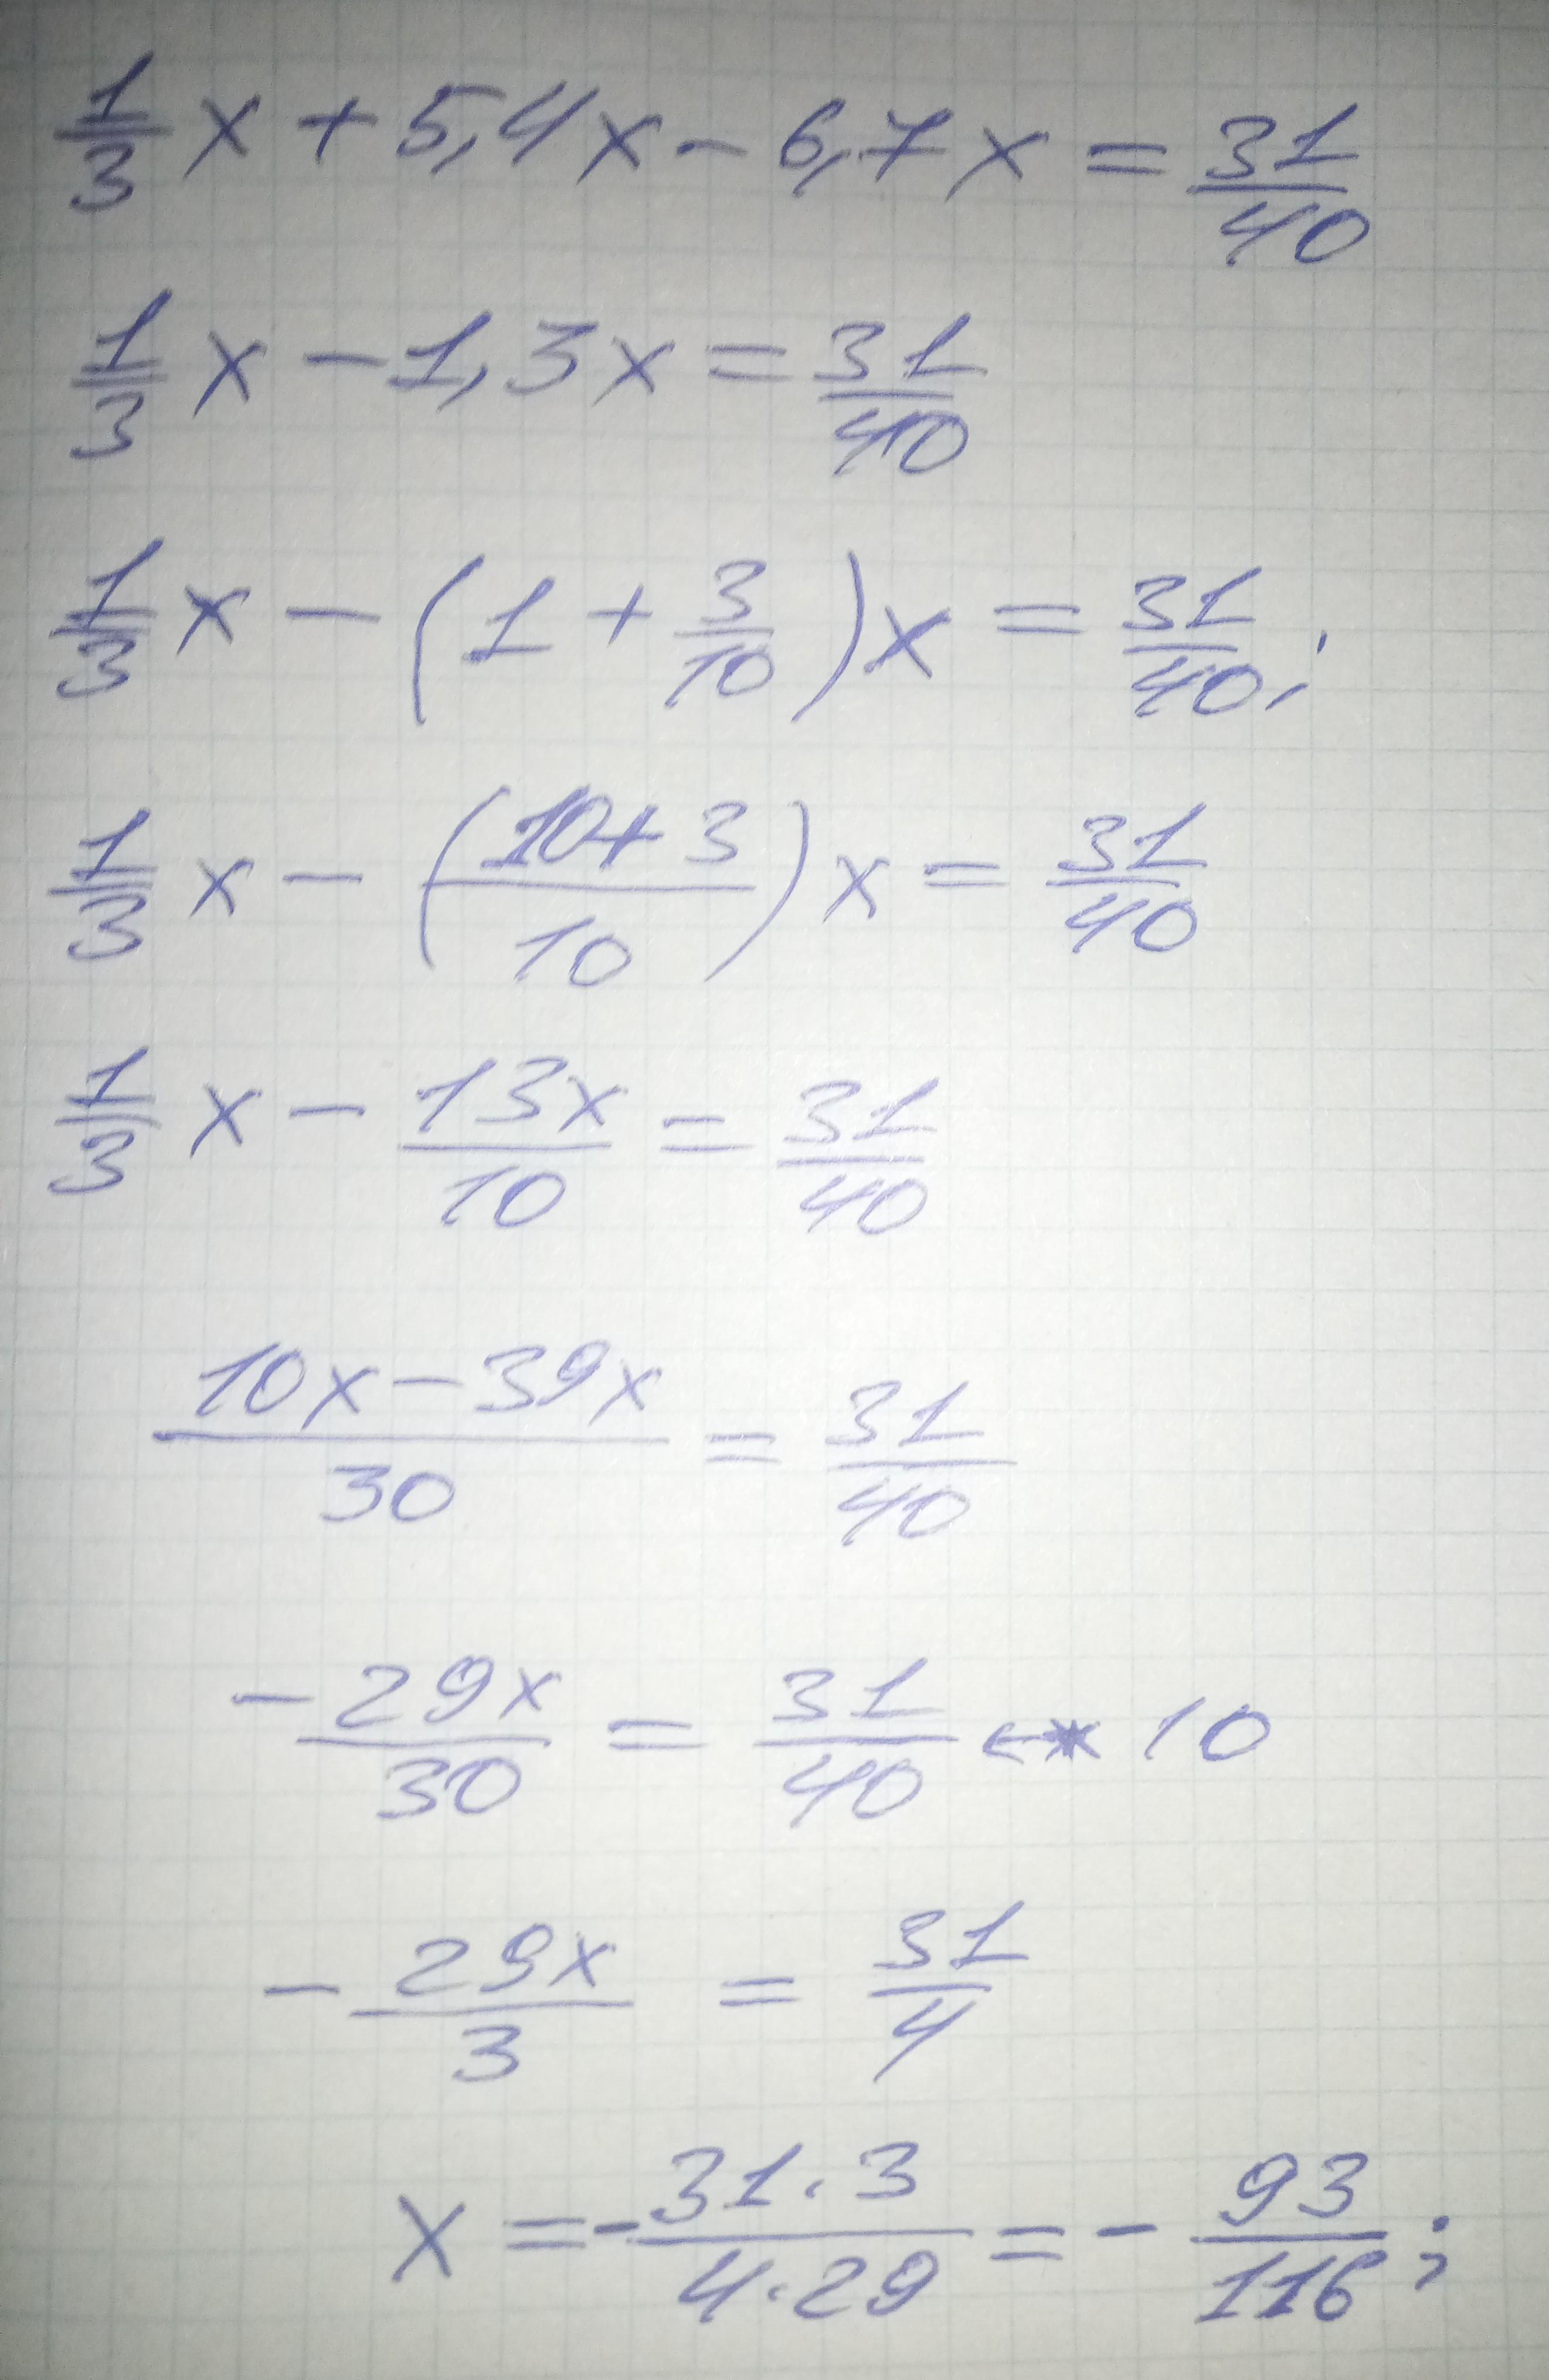 1/3 x + 5,4x - 6,7x = 31/40
1/3 x - 1,3x = 31/40
1/3 x - (1 + 3/10)x = 31/40;
1/3 x - (10+3/10)x = 31/40
1/3 x - 13x/10 = 31/40
10x - 39x/30 = 31/40
- 29x/30 = 31/40 ← * 10
- 29x/3 = 31/4
x = - 31·3/4·29 = - 93/116;